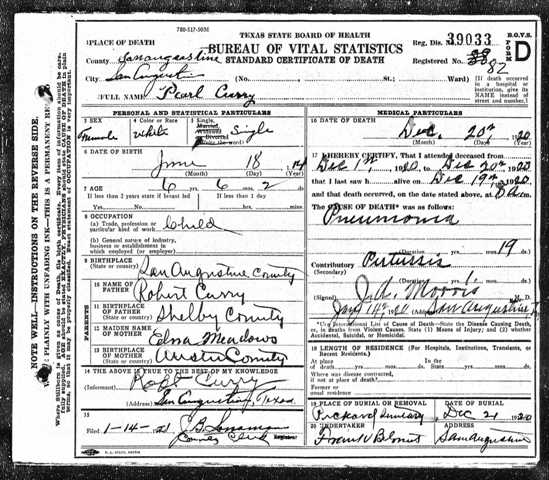 780-517-5036
TEXAS STATE BOARD OF HEALTH
BUREAU OF VITAL STATISTICS
STANDARD CERTIFICATE OF DEATH
Reg. Dis. 39033
Registered No. 82
B.O.V.S. FORM D
1 PLACE OF DEATH
County San Augustine
City San Augustine (No. St.; Ward)
[If death occurred in a hospital or institution, give its NAME instead of street and number.]
2 FULL NAME Pearl Curry
PERSONAL AND STATISTICAL PARTICULARS
3 SEX Female
4 Color or Race white
5 Single, Married, Widowed or Divorced (Write the word) Single
6 DATE OF BIRTH
June 18 14
(Month) (Day) (Year)
7 AGE 6 6 2
If less than 2 years state if breast fed
If less than 1 day
8 OCCUPATION
(a) Trade, profession or particular kind of work Child
(b) General nature of industry, business or establishment in which employed (or employer)
9 BIRTHPLACE (State or country) San Augustine County
PARENTS
10 NAME OF FATHER Robert Curry
11 BIRTHPLACE OF FATHER (State or country) Shelby County
12 MAIDEN NAME OF MOTHER Edna Meadows
13 BIRTHPLACE OF MOTHER (State or country) Austin County
14 THE ABOVE IS TRUE TO THE BEST OF MY KNOWLEDGE
(Informant) Robt Curry
(Address) San Augustine, Texas
15
Filed 1-14-21
County Clerk Registrar
MEDICAL PARTICULARS
16 DATE OF DEATH
Dec. 20th 1920
(Month) (Day) (Year)
17 I HEREBY CERTIFY, That I attended deceased from
Dec 1st, 1920, to Dec 20th 1920
that I last saw h alive on Dec 19th 1920
and that death occurred, on the date stated above, at m.
The CAUSE OF DEATH* was as follows:
Pneumonia
(Duration) yrs. mos. 19 ds.
Contributory Pertussis
(Secondary)
(Duration) yrs. 1 mos. ds.
(Signed) J.A. Morris
Jan 14th 1920 (Address) San Augustine T
*Use International List of Cause of Death—State the Disease Causing Death, or, in deaths from Violent Causes, State (1) Means of Injury; and (2) whether Accidental, Suicidal, or Homicidal.
18 LENGTH OF RESIDENCE (For Hospitals, Institutions, Transients, or Recent Residents.)
At place of death yrs. mos. ds. In the State yrs. mos. ds.
Where was disease contracted, if not at place of death?
Former or usual residence
19 PLACE OF BURIAL OR REMOVAL Pickard
DATE OF BURIAL Dec 21 1920
20 UNDERTAKER
ADDRESS San Augustine
NOTE WELL—INSTRUCTIONS ON THE REVERSE SIDE.